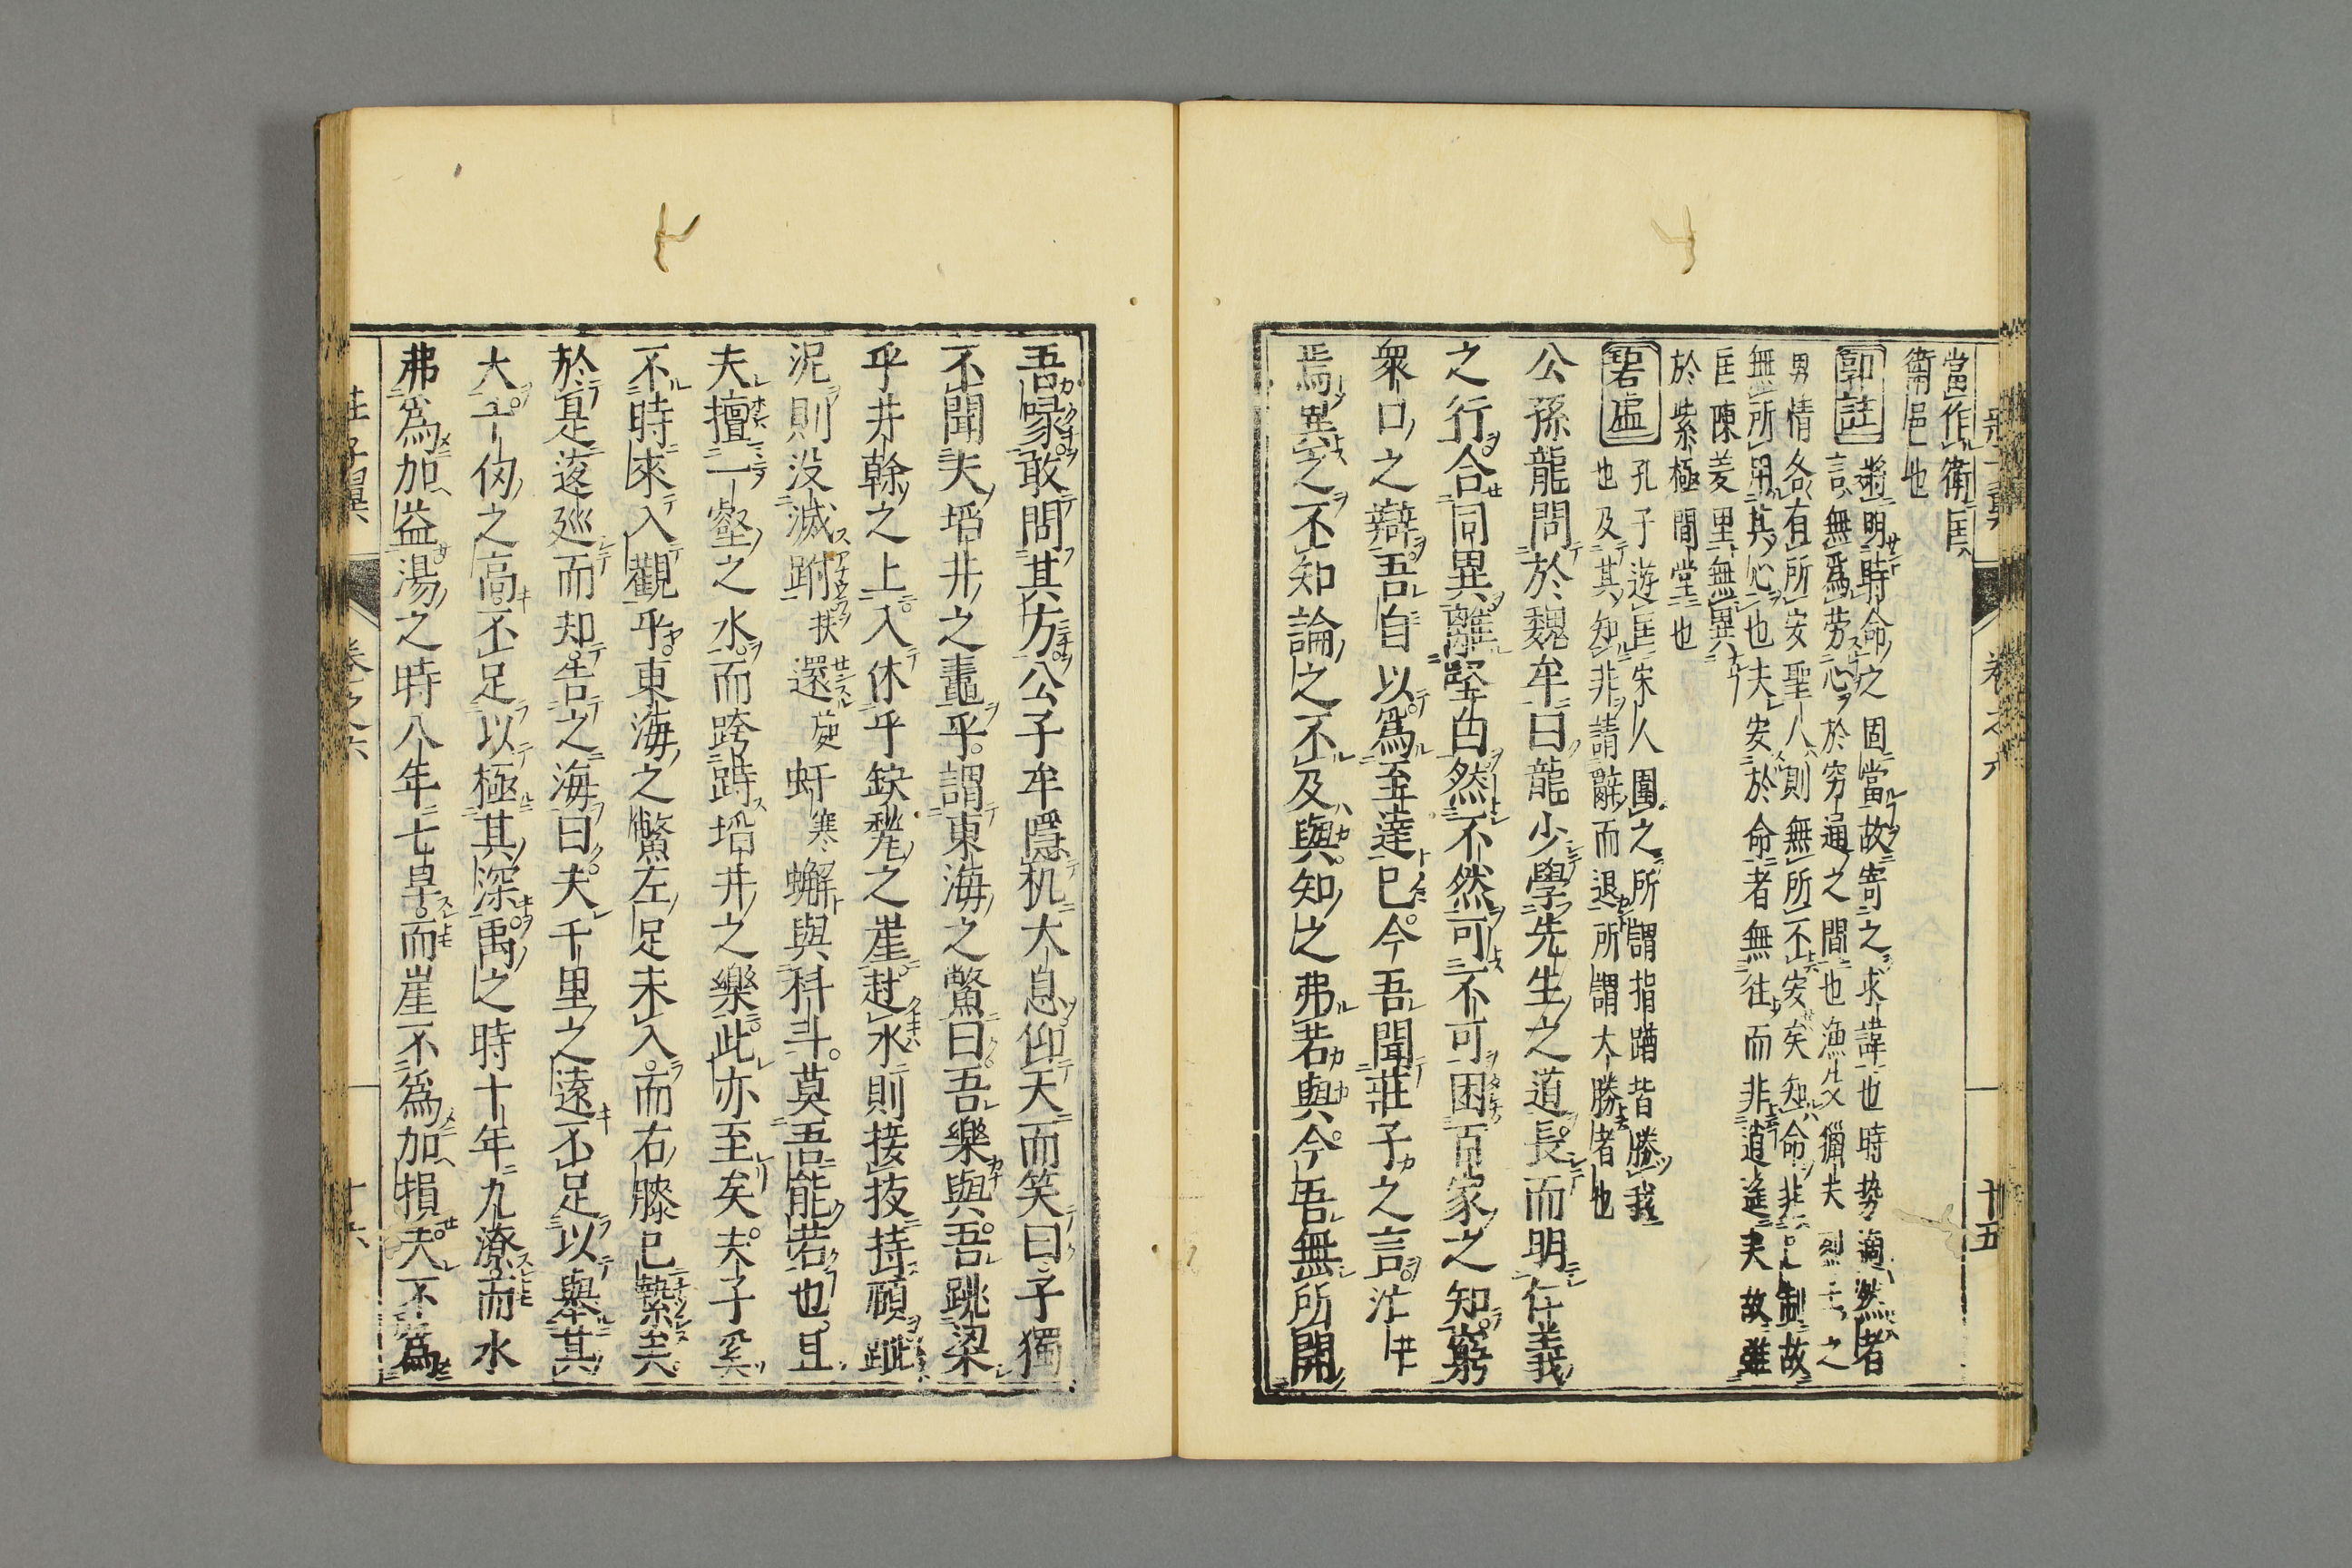 當作衛匡
衛邑也
郭註
將明時命之固當故寄之求諱也時勢適然者
言無爲勞心於穷通之間也漁父獵夫烈士之
男情各有所安聖人則無所不安矣知命非己制故
無所用其心也夫安於命者無往而非逍遙夫故雖
匡陳羑里無異
於紫極間堂也
碧虛
孔子遊匡宋人圍之所謂指蹐皆勝我
也及其知非請辭而退所謂大勝者也
公孫龍問於魏牟曰龍少學先生之道長而明仁義
之行合同異離堅白然不然可不可困百家之知窮
衆口之辯吾自以爲至達已今吾聞莊子之言茫
焉異之不知論之不及與知之弗若與今吾無所開
卷之六
廿五
吾喙敢問其方公子牟隱机大息仰天而笑曰子獨
不聞夫埳井之鼃乎謂東海之鱉曰吾樂與吾跳梁
乎井幹之上入休乎缺甃之崖赴水則接掖持頤蹶
泥則没滅跗扶還旋虷寒蠏與科斗莫吾能若也且
夫擅一壑之水而跨跱埳井之樂此亦至矣夫子奚
不時來入觀乎東海之鱉左足未入而右膝已縶矣
於是逡廵而却告之海曰夫千里之遠不足以舉其
大千仞之高不足以極其深禹之時十年九潦而水
弗爲加益湯之時八年七旱而崖不爲加損夫不爲
莊子翼
卷之六
十六